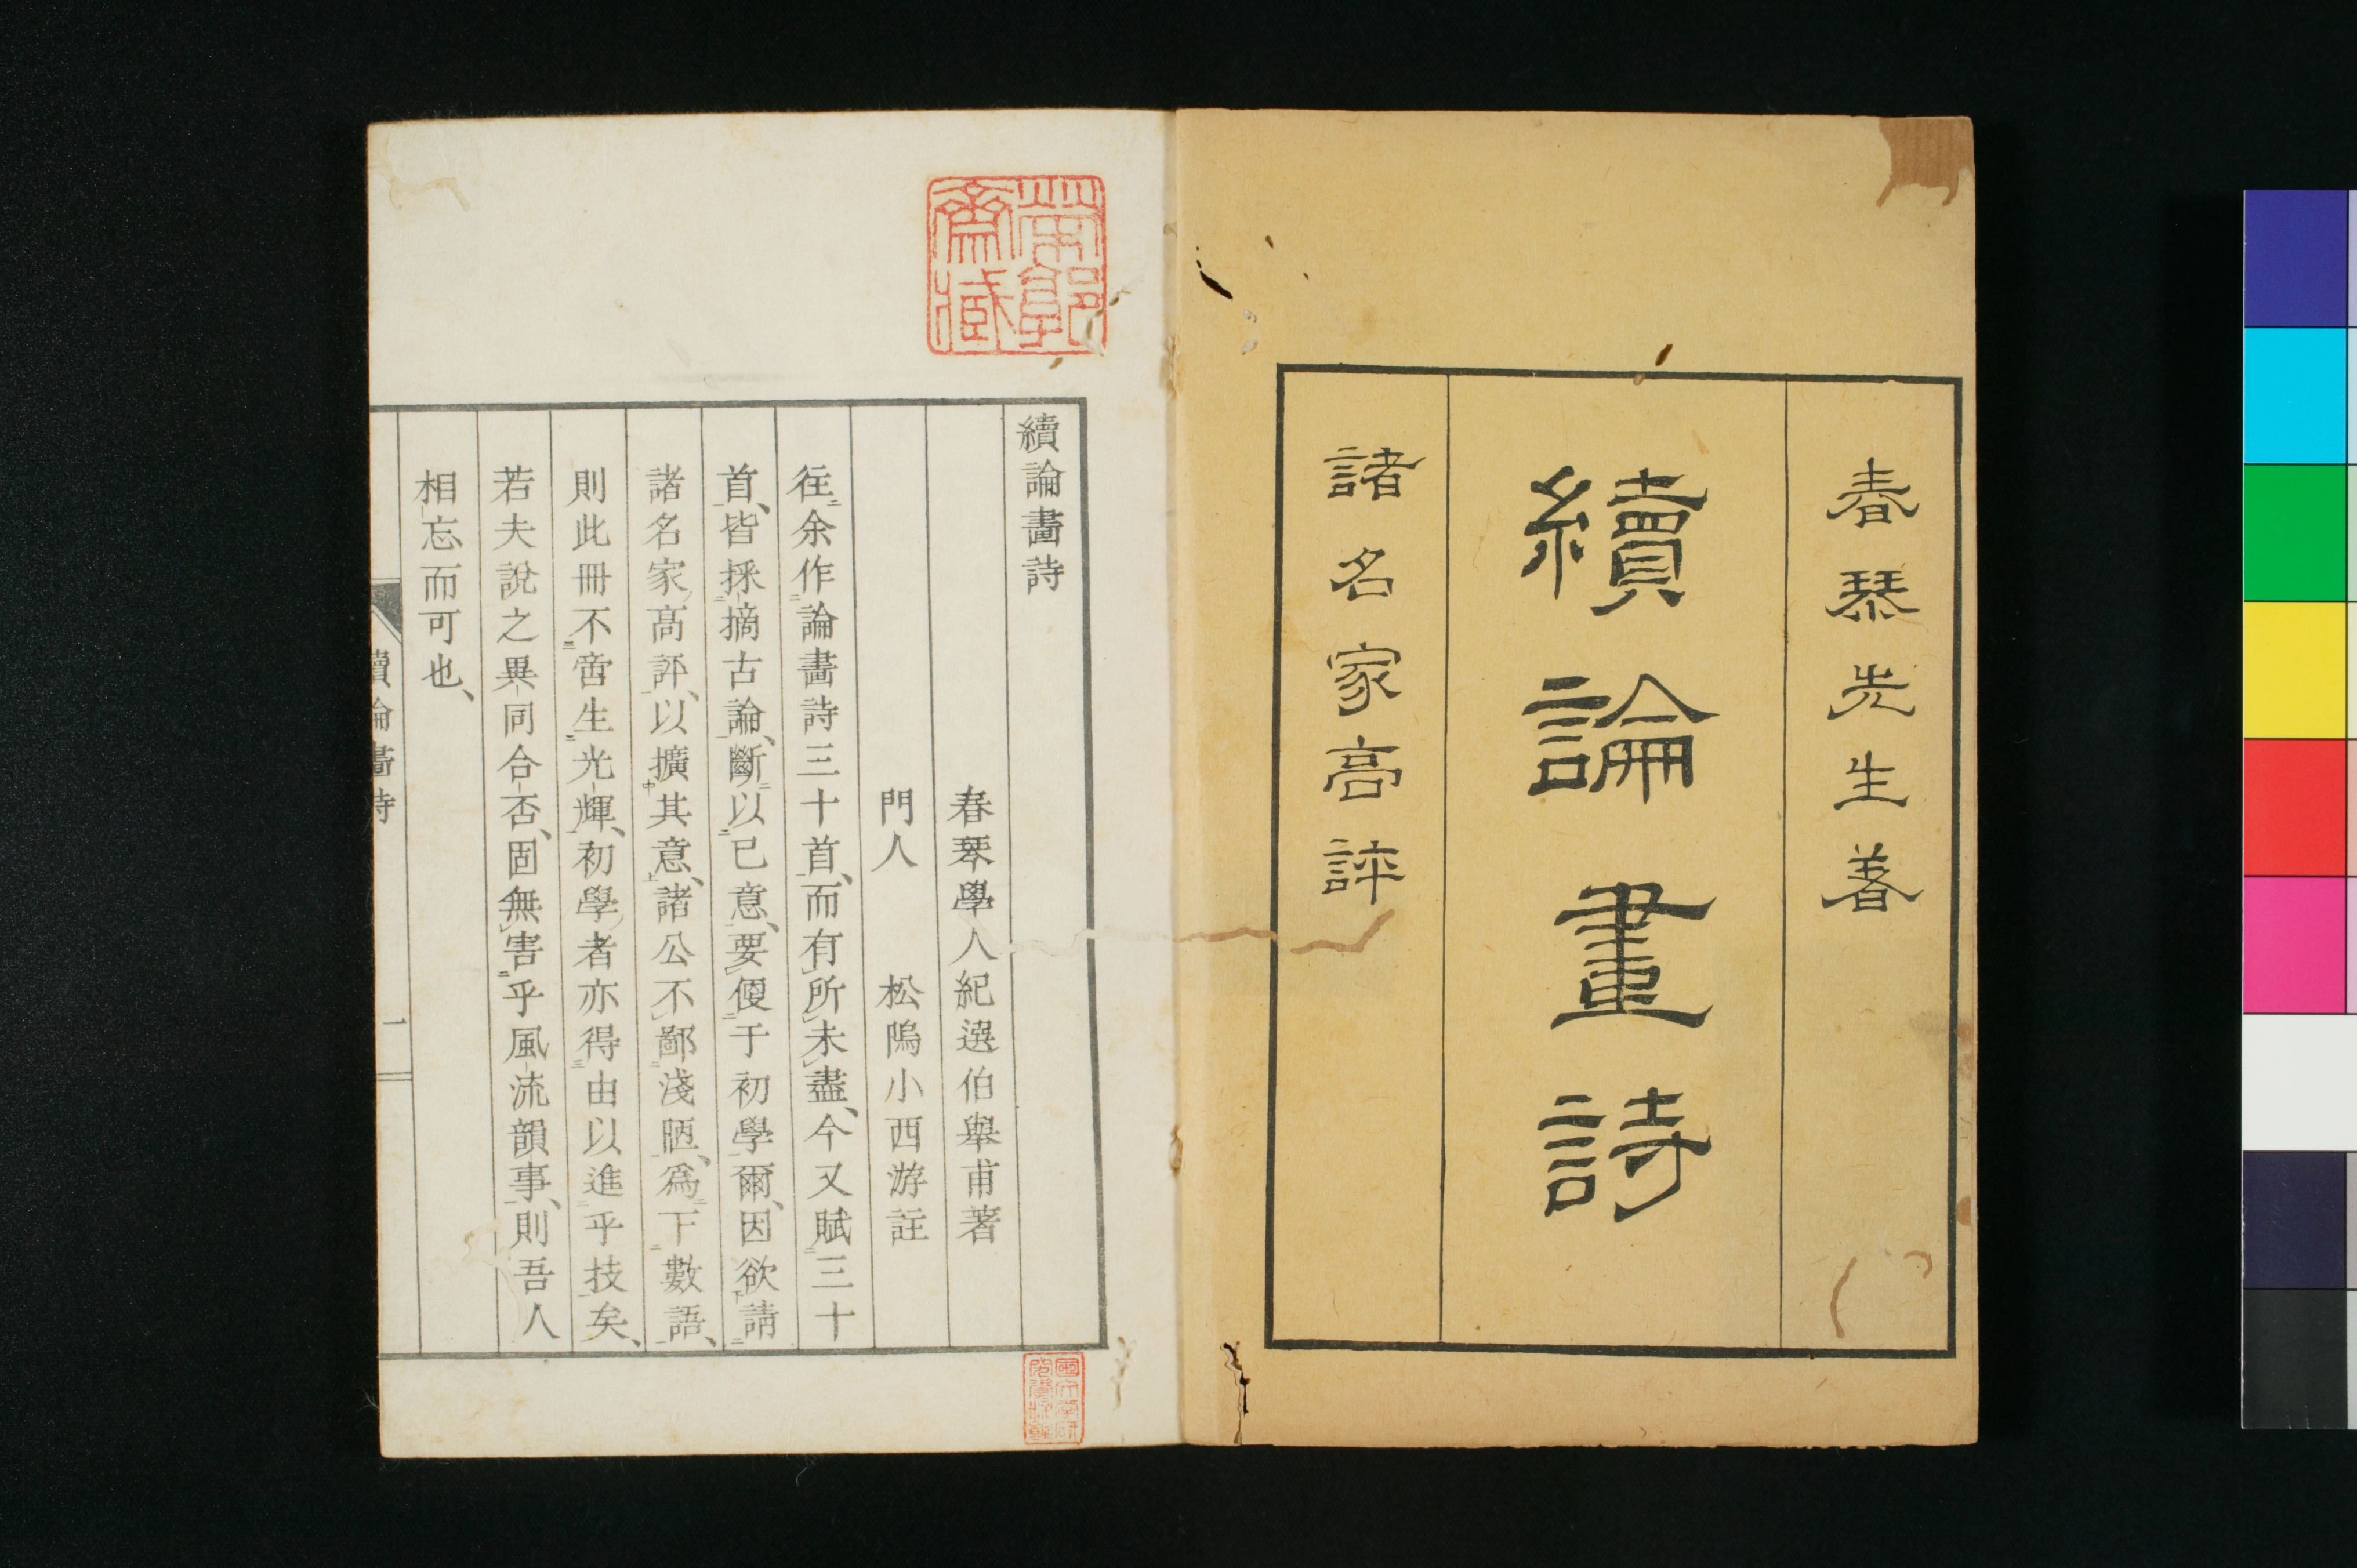 春琹先生著
續論畫詩
諸名家高評
續論畫詩
春琴學人紀選伯舉甫著
門人　松隖小西游註
往余作論畫詩三十首、而有所未盡、今又賦三十
首、皆採摘古論、斷以己意、要便于初學爾、因欲請
諸名家高評、以擴其意、諸公不鄙淺陋、爲下數語、
則此冊不啻生光輝、初學者亦得由以進乎技矣、
若夫說之異同合否、固無害乎風流韻事、則吾人
相忘而可也、
續論畫詩
一